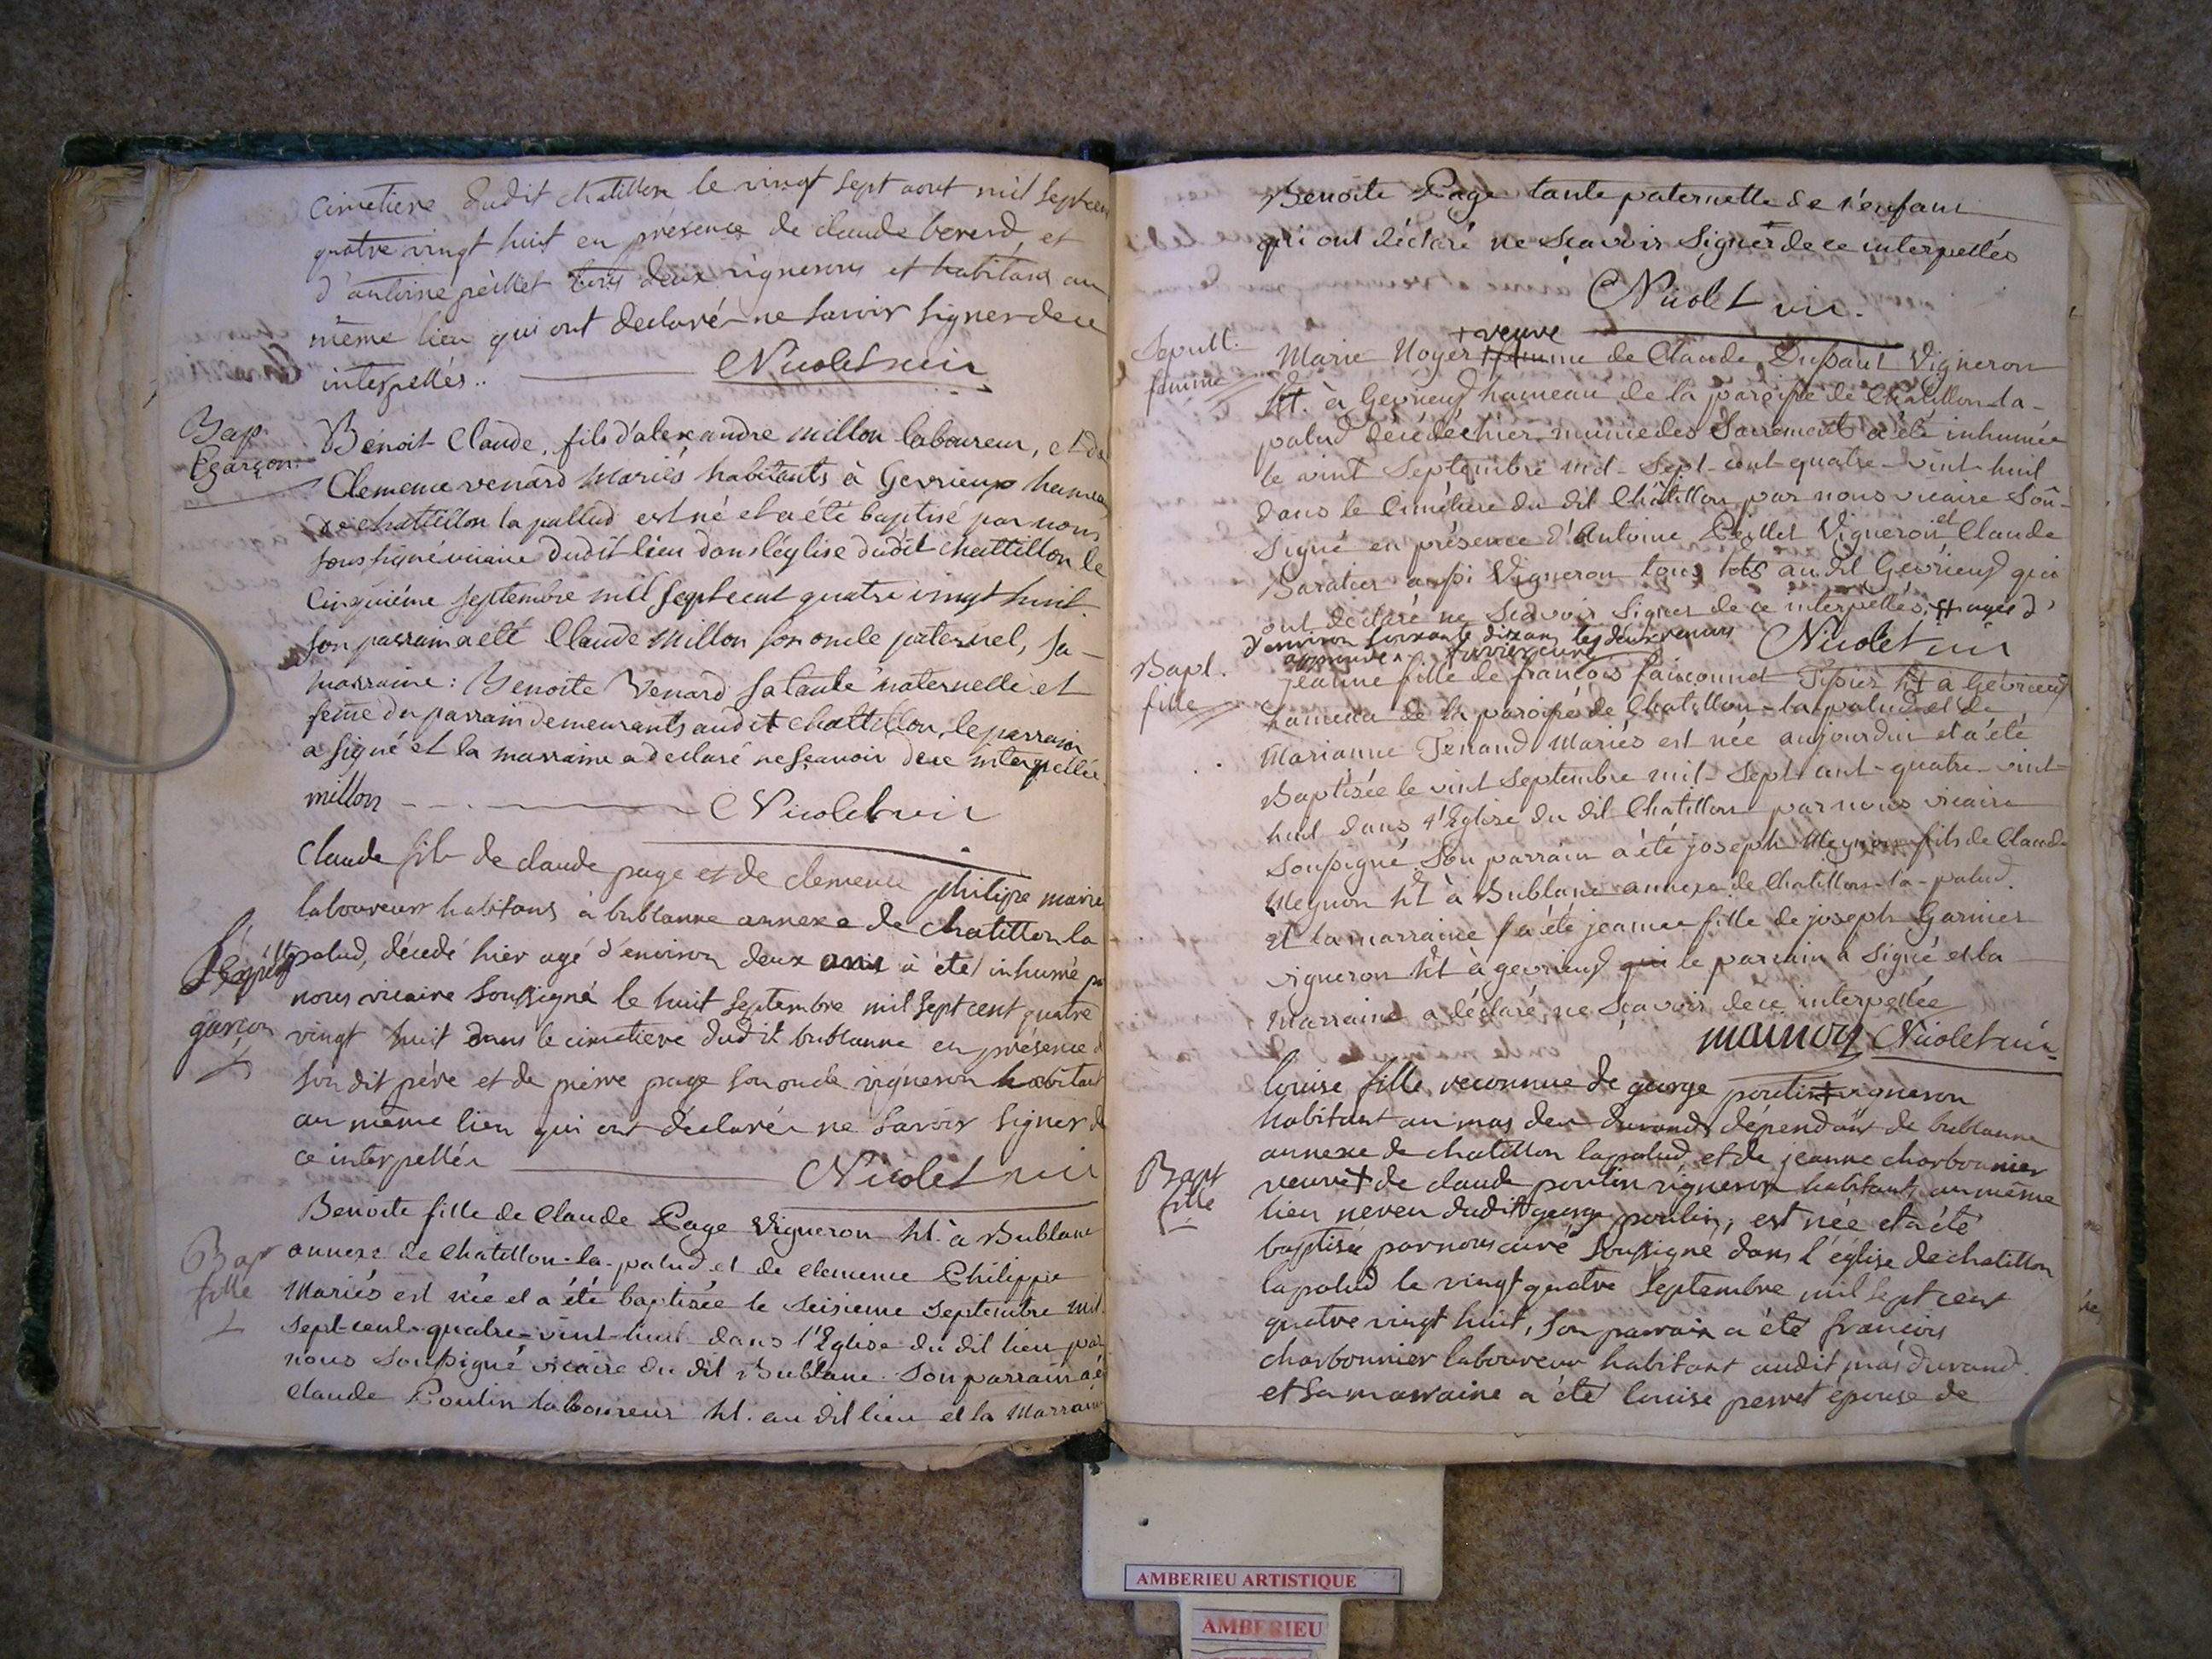 cimetiere dudit chatillon le vingt sept aout mil sept cen
quatre vingt huit en présence de claude bererd et
d'antoine peillet tous deux vignerons et habitans au
même lieu qui ont declaré ne savoir signer de ce
interpellés .. Nicolet vic
Bap.
garçon
Benoit Claude, fils d'alexandre millon laboureur, et de
Clemence venard mariés habitants à Gevrieux hameau
de chatillon la pallud est né et a été baptisé par nous
soussigné vicaire dudit lieu dans l'église dudit chattillon le
cinquiéme septembre mil sept cent quatre vingt huit
son parrain a été Claude millon son oncle paternel, sa
marraine : Benoite Venard sa tante maternelle et
feme du parrain demeurants audit chattillon, le parrain
a signé et la marraine a declaré ne sçavoir de ce interpellée
millon Nicolet vic
Claude fils de claude page et de clemence philipe mariés
laboureurs habitans à bublanne annexe de chatillon la
palud, décedé hier agé d'environ deux ans a été inhumé par
garçon
nous vicaire soussigné le huit septembre mil sept cent quatre
vingt huit dans le cimetiere dudit bublanne en présence de
son dit père et de pierre page son oncle vigneron habitant
au même lieu qui ont déclarés ne savoir signer de
ce interpellés Nicolet vic
Bap
fille
Benoite fille de Claude Page Vigneron ht. à Bublane
annexe de Chatillon-la-palud et de clemence Philippe
Mariés est née et a été baptisée le seisieme septembre mil
sept-cent-quatre-vint-huit dans l'Eglise du dit lieu par
nous soussigné vicaire du dit Bublane. Son parrain a é
Claude Poulin laboureur ht. au dit lieu et la Marraine
Benoite Page tante paternelle de l'enfant
qui ont déclaré ne Sçavoir Signer de ce interpellés
Nicolet vic.
Sepult.
femme
+ veuve
Marie Noyer femme de Claude Dussaut Vigneron
ht. à Gevrieux hameau de la paroisse de Chatillon-la-
palud décédée hier munie des Sacrements a été inhumée
le vint Septembre mil-Sept-cent-quatre-vint-huit
dans le Cimetiere du dit Châtillon par nous vicaire Sou-
Signé en présence d'Antoine Peillet Vigneron et Claude
Baratier aussi Vigneron tous hts au dit Gevrieux qui
ont déclaré ne Sçavoir Signer de ce interpellés, agée d'
d'environ soixante dix ans les deux renvois
Nicolet vic
Bapt.
fille
Jeanne fille de françois faisconnet Tissier ht à Gevrieux
hameau de la paroisse de Chatillon-la-palud et de
Marianne Tenand Mariés est née aujourdui et a été
Baptisée le vint Septembre mil-Sept-cent-quatre-vint-
huit dans l'Eglise du dit Chatillon par nous vicaire
Soussigné Son parrain a été joseph Meynon fils de Claude
Meynon ht à Bublane annexe de Chatillon-la-palud
et la marraine a été jeanne fille de joseph Garnier
vigneron ht à gevrieux le parrain a Signé et la
Marraine a déclaré ne Sçavoir de ce interpellée
mainon Nicolet vic
Bapt
fille
louise fille reconnue de george poulin vigneron
habitant au mas des durands dépendant de bublanne
annexe de chatillon lapalud et de jeanne charbonnier
veuve de claude poulin vigneron habitant au même
lieu neveu dudit george poulin, est née et a été
baptisée par nous curé soussigné dans l'église de chatillon
lapalud le vingt quatre septembre mil sept cent
quatre vingt huit, son parrain a été françois
charbonnier laboureur habitant audit mas durand
et sa marraine a été louise perret épouse de
AMBERIEU ARTISTIQUE
AMBERIEU